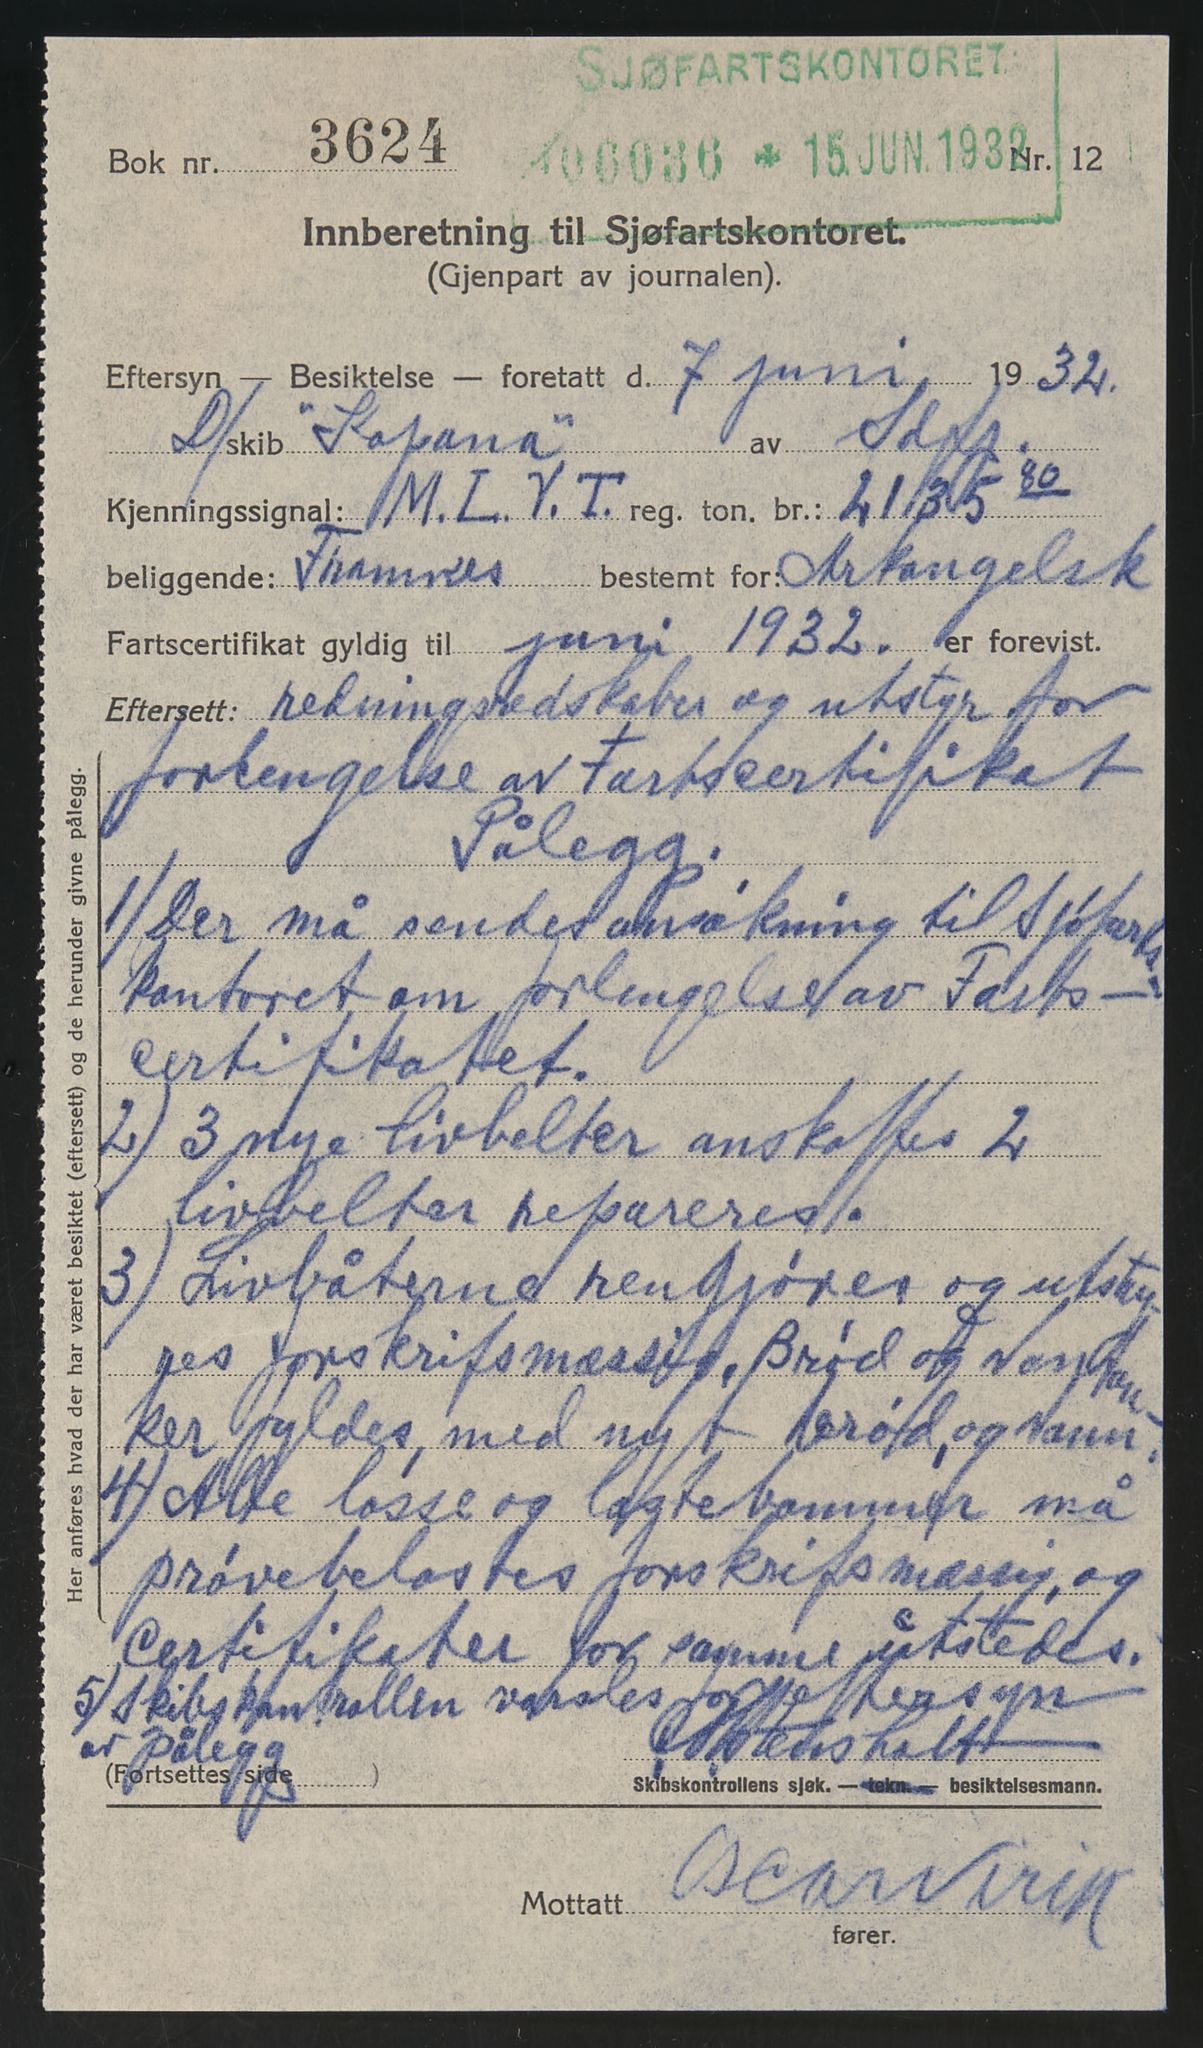 SJØFARTSKONTORET
06036 * 15. JUN. 1932
Bok nr. 3624 Nr. 12
Innberetning til Sjøfartskontoret.
(Gjenpart av journalen).
Eftersyn — Besiktelse — foretatt d. 7 juni 1932.
D/skib "Kapana" av Sdfj.
Kjenningssignal: M.L.V.T. reg. ton. br.: 2135 80
beliggende: bestemt for: Arkangelsk
Fartscertifikat gyldig til juni 1932. er forevist.
Eftersett: redningsredskaber og utstyr for
forlengelse av Fartscertifikat
Pålegg.
1) Der må sendes ansøkning til Sjøfarts-
kontoret om forlengelse av Farts-
certifikatet.
2) 3 nye livbelter anskaffes 2
livbelter repareres.
3) Livbåterne rengjøres og utsty-
res forskrifsmæssig. Brød og vantan-
ker fyldes, med nyt brød, og vann.
4) Alle losse og lastebommer må
prøvebelastes forskrifsmæssig, og
Certifikater for samme utstedes.
5) Skibskontrollen varsles for eftersyn
av pålegg
(Fortsettes side )
Skibskontrollens sjøk. — tekn. — besiktelsesmann.
Mottatt Oscar Virik
fører.
Her anføres hvad der har været besiktet (eftersett) og de herunder givne pålegg.